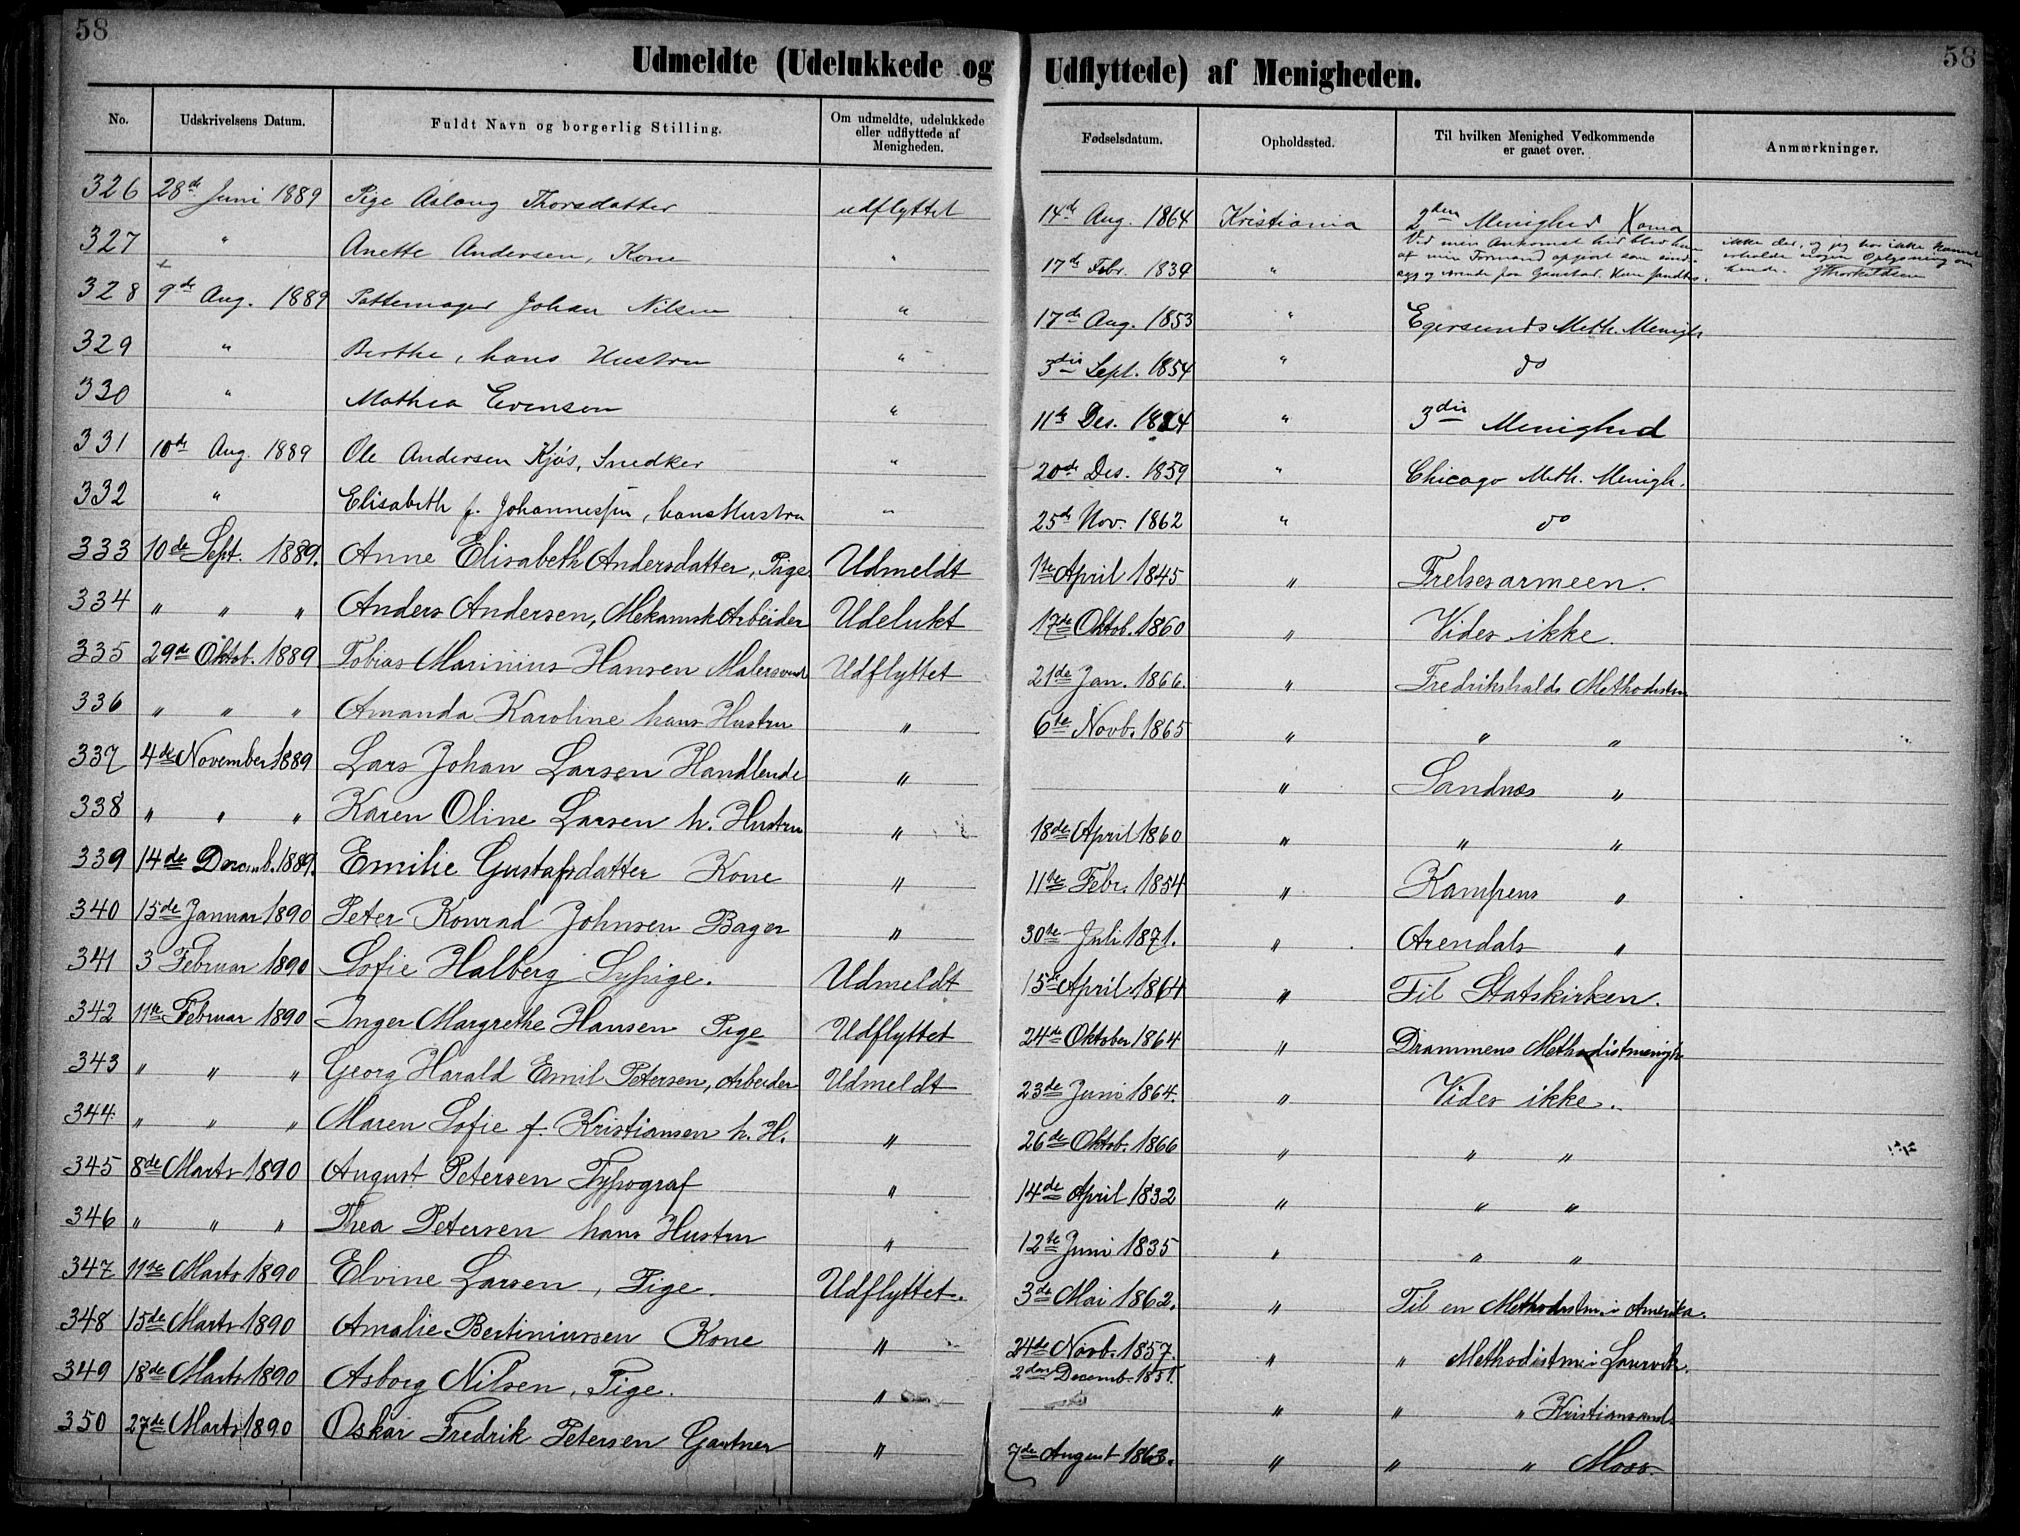 58
58
Udmeldte (Udelukkede og Udflyttede) af Menigheden.
No. Udskrivelsens Datum. Fuldt Navn og borgerlig Stilling. Om udmeldte, udelukkede eller udflyttede af Menigheden. Fødselsdatum. Opholdssted. Til hvilken Menighed Vedkommende er gaaet over. Anmærkninger.
326 28de Juni 1889 Pige Aslaug Thorsdatter udflyttet 14de Aug. 1864 Kristiania 2den Menighed
327 " Anette Andersen, Kone " 17de Febr. 1839 " Ved min Ankomst hid blev hun af min Formand opgivet som
328 9de Aug. 1889 Pottemager Johan Nilsen " 17de Aug. 1853 " Egersunds Meth. Menigh.
329 " Berthe, hans Hustru " 3die Sept. 1854 " do
330 " Mathea Evensen " 11te Des. 1824 " 3die Menighed
331 10de Aug 1889 Ole Andersen Kjøs, Snedker " 20de Des. 1859 " Chicago Meth. Menigh.
332 " Elisabeth f. Johannessen, hans Hustru " 25de Nov. 1862 " do
333 10de Sept. 1889. Anne Elisabeth Andersdatter, Pige Udmeldt 1te April 1845 " Frelsesarmeen.
334 " " " Anders Andersen, Mekanisk Arbeider Udelukt 17de Oktob. 1860 " Vides ikke.
335 29de Oktob. 1889 Tobias Marinius Hansen Malersvend Udflyttet 21de Jan. 1866. " Fredrikshalds Methodistm
336 " " " Amanda Karoline hans Hustru " 6te Novb. 1865 " " "
337 4de November 1889 Lars Johan Larsen Handlende " " Sandnæs "
338 " " " Karen Oline Larsen h. Hustru " 18de April 1860 " " "
339 14de Decemb. 1889. Emilie Gustafsdatter Kone " 11te Febr. 1854 " Kampens "
340 15de Januar 1890 Peter Konrad Johnsen Bager " 30te Juli 1871. " Arendals "
341 3 Februar 1890 Sofie Halberg Sypige. Udmeldt 15de April 1864 " Til Statskirken.
342 11te Februar 1890 Inger Margrethe Hansen Pige Udflyttet 24de Oktober 1864 " Drammens Methodistmenigh
343 " " " Georg Harald Emil Petersen, Arbeider Udmeldt 23de Juni 1864. " Vides ikke.
344 " " " Maren Sofie f. Kristiansen h. H. " 26de Oktob. 1866 " " "
345 8de Marts 1890 August Petersen Typograf " 14de April 1832 " " "
346 " " " Thea Petersen hans Hustru " 12te Juni 1835 " " "
347 11te Marts 1890 Elvine Larsen, Pige. Udflyttet. 3de Mai 1862. " Til en Methodistm. i Amerika.
348 15de Marts 1890 Amalie Bertiniussen Kone " 24de Novb. 1857. " " Methodistm i Laurvik.
349 18de Marts 1890 Asborg Nilsen, Pige. " 2den Decemb. 1851. " " " Kristiansand.
350 27de Marts 1890 Oskar Fredrik Petersen Gartner " 7de August 1863. " " " Moss.